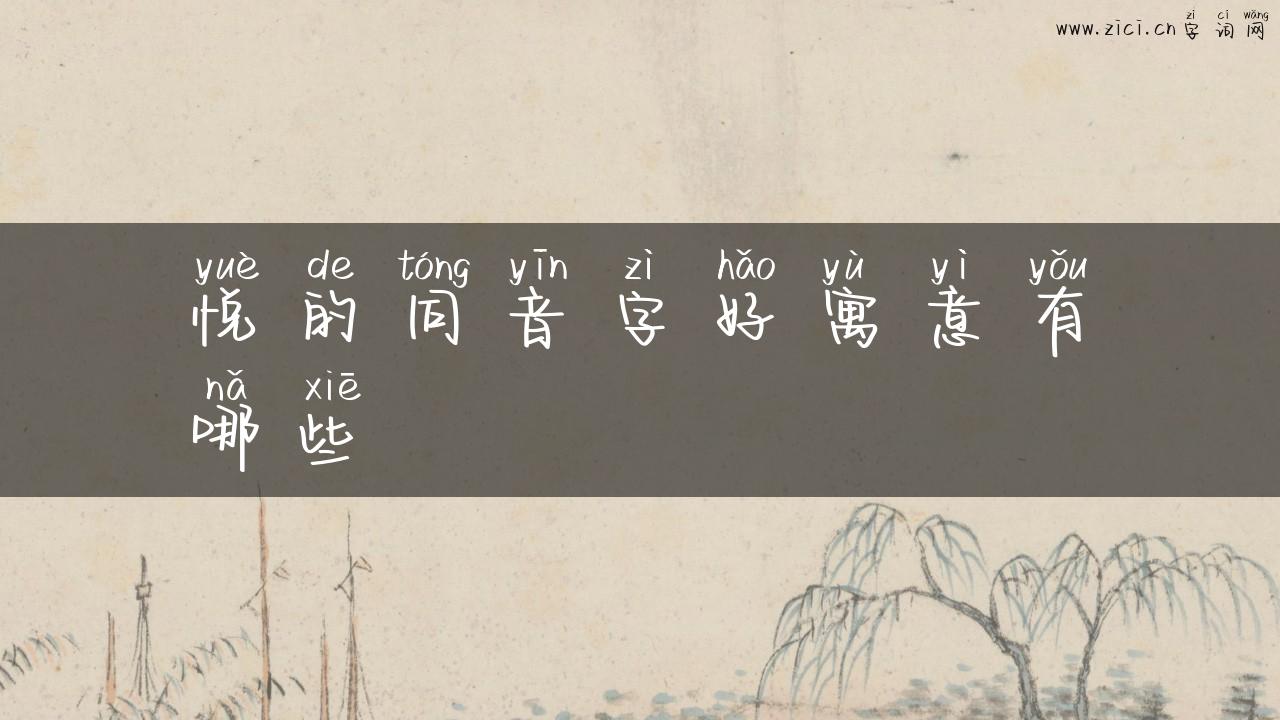 zì cí wǎng
www.zici.cn字词网
yuè de tóng yīn zì hǎo yù yì yǒu
悦的同音字好寓意有
nǎ xiē
哪些